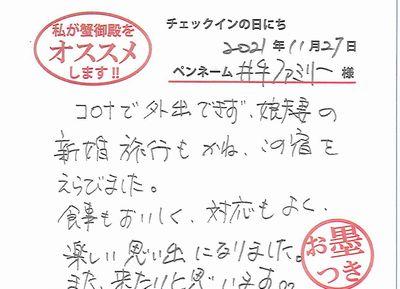 私が蟹御殿を
オススメ
します!!
チェックインの日にち
2021年11月27日
ペンネーム 井手ファミリー 様
コロナで外出できず、娘夫妻の
新婚旅行もかね、この宿を
えらびました。
食事もおいしく、対応もよく、
楽しい思い出になりました。
また、来たいと思います。
お墨
つき